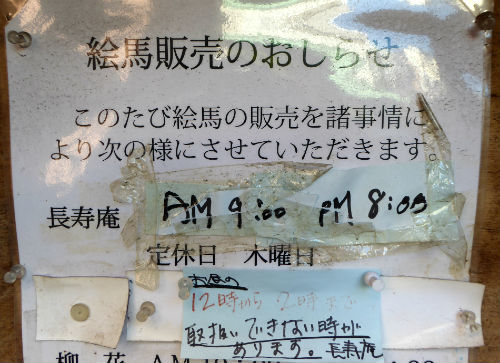 絵馬販売のおしらせ
このたび絵馬の販売を諸事情に
より次の様にさせていただきます。
長寿庵 AM 9:00 PM 8:00
定休日 木曜日
お昼の
12時から2時まで
取扱いできない時が
あります。長寿庵
柳 花 AM